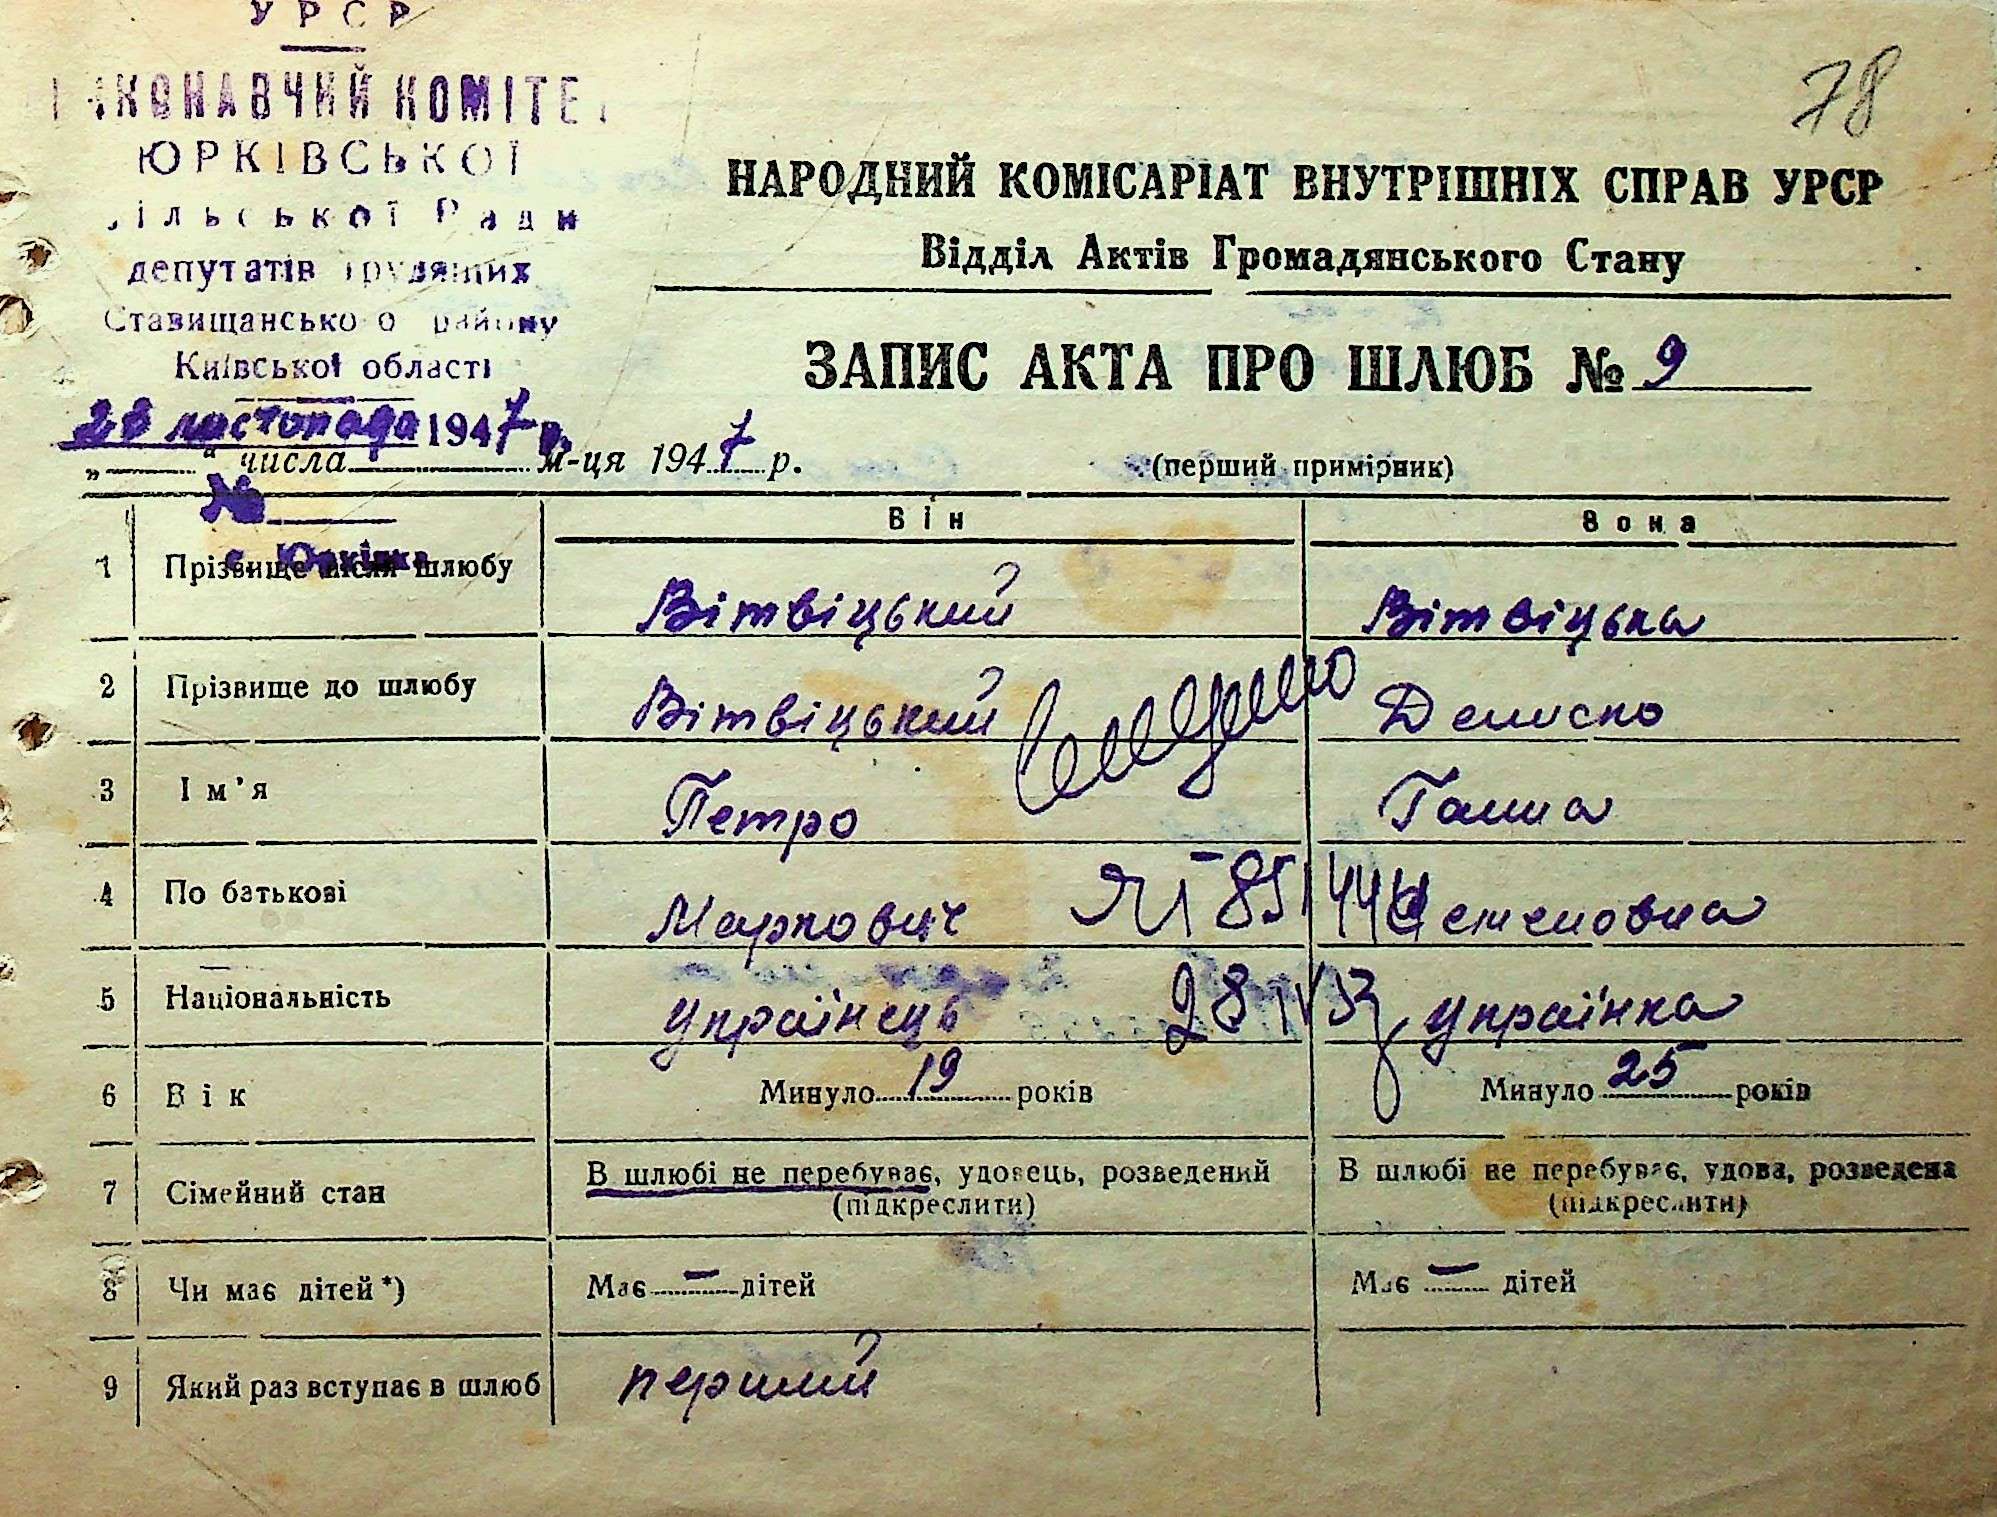 УРСР
ВИКОНАВЧИЙ КОМІТЕТ
ЮРКІВСЬКОЇ
сільської Ради
депутатів трудящих
Ставищанського району
Київської області
28 листопада 1947 р.
№
с. Юрківка
78
НАРОДНИЙ КОМІСАРІАТ ВНУТРІШНІХ СПРАВ УРСР
Відділ Актів Громадянського Стану
ЗАПИС АКТА ПРО ШЛЮБ № 9
„ “ числа м-ця 1947 р. (перший примірник)
Він Вона
1 Прізвище після шлюбу Вітвіцький Вітвіцька
2 Прізвище до шлюбу Вітвіцький Дениско
3 Ім’я Петро Ганна
4 По батькові Маркович ЯІ 851446
5 Національність українець 28 IV 53 українка
6 Вік Минуло 19 років Минуло 25 років
7 Сімейний стан В шлюбі не перебуває, удовець, розведений В шлюбі не перебуває, удова, розведена
(підкреслити) (підкреслити)
8 Чи має дітей *) Має — дітей Має — дітей
9 Який раз вступає в шлюб перший